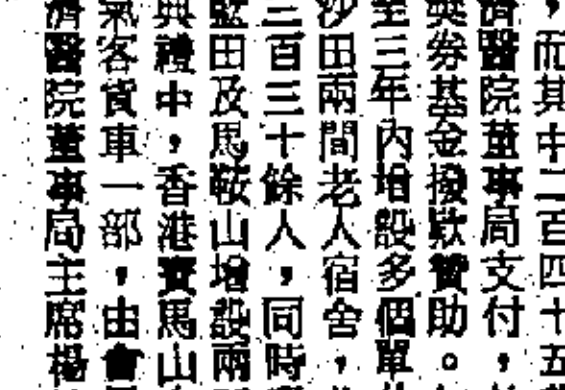 ，而其中二百四十五
濟醫院董事局支付，
獎券基金撥款贊助。
至三年內增設多個單
沙田兩間老人宿舍，
三百三十餘人，同時
藍田及馬鞍山增設兩
典禮中，香港賽馬山
氣客貨車一部，由會
濟醫院董事局主席楊